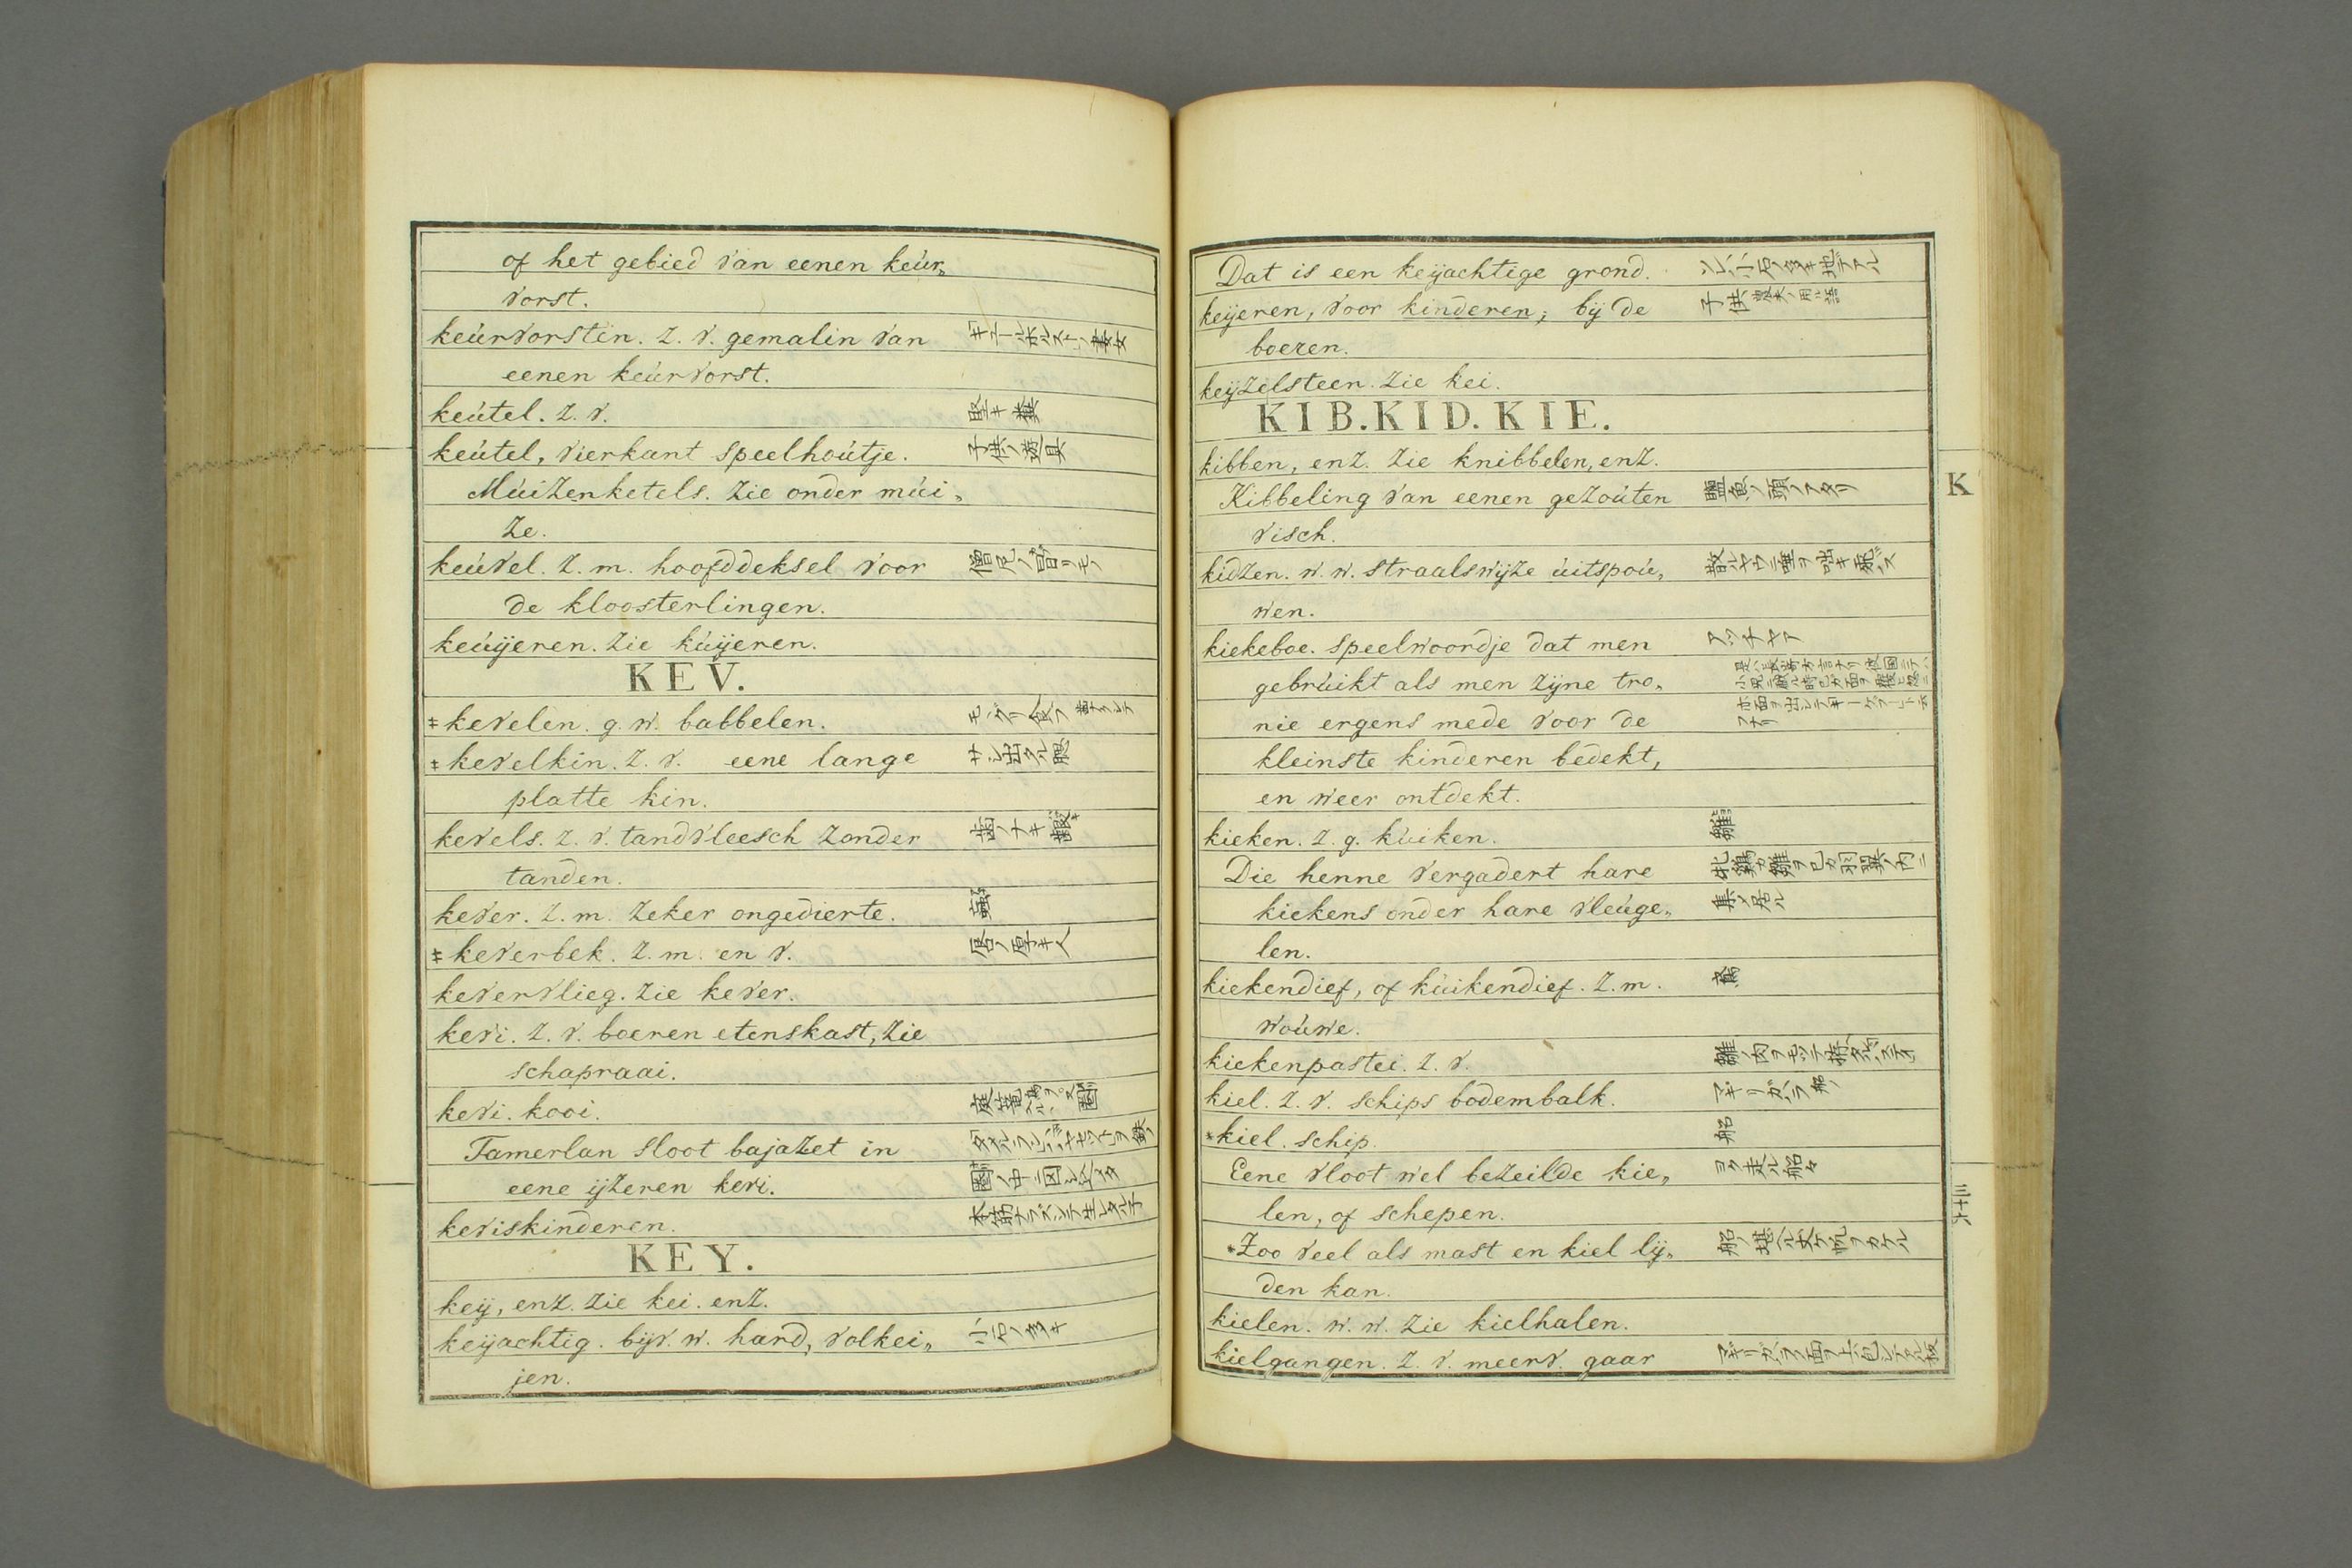 of het gebied van eenen keúr„
vorst.
keúrvorstin. z. v. gemalin van
eenen keúrvorst.
keútel. z. v. 堅キ糞
keútel, vierkant speelhoútje. 子供ノ遊具
Múizenketels. zie onder múi„
ze.
keúvel. z. m. hoofddeksel voor
de kloosterlingen.
keúijeren. zie kúijeren.
KEV.
‡kevelen. g. w. babbelen.
‡kevelkin. z. v. eene lange
platte kin.
kevels. z. v. tandvleesch zonder
tanden.
kever. z. m. zeker ongedierte.
‡keverbek. z. m. en v. 唇ノ厚キ人
kevervlieg. zie kever.
kevi. z. v. boeren etenskast, zie
schapraai.
kevi. kooi.
Tamerlan sloot bajazet in
eene ijzeren kevi.
keviskinderen.
KEY.
keij, enz. zie kei. enz.
keijachtig. bijv. w. hard, volkei„ 小石ノ多キ
jen.
Dat is een keijachtige grond. ソレハ小石ノ多キ地デアル
keijeren, voor kinderen; bij de 子供
boeren.
keijzelsteen. zie kei.
KIB. KID. KIE.
kibben, enz. zie knibbelen, enz.
Kibbeling van eenen gezoúten
visch.
kidzen. w. w. straalswijze úitspoú„
wen.
kiekeboe. speelwoordje dat men
gebrúikt als men zijne tro„
nie ergens mede voor de
kleinste kinderen bedekt,
en weer ontdekt.
kieken. z. g. kúiken. 雛
Die henne vergadert hare 牝鶏ガ雛ヲ己ガ羽翼ノ内ニ
kiekens onder hare vleúge„ 集メ居ル
len.
kiekendief, of kúikendief. z. m. 鳶
woúwe.
kiekenpastei. z. v.
kiel. z. v. schips bodembalk.
*kiel. schip. 船
Eene vloot wel bezeilde kie„ ヨク走ル船々
len, of schepen.
*Zoo veel als mast en kiel lij„ 船ノ堪ヘル丈ケ帆ヲカケル
den kan.
kielen. w. w. zie kielhalen.
kielgangen. z. v. meerv. gaar
K